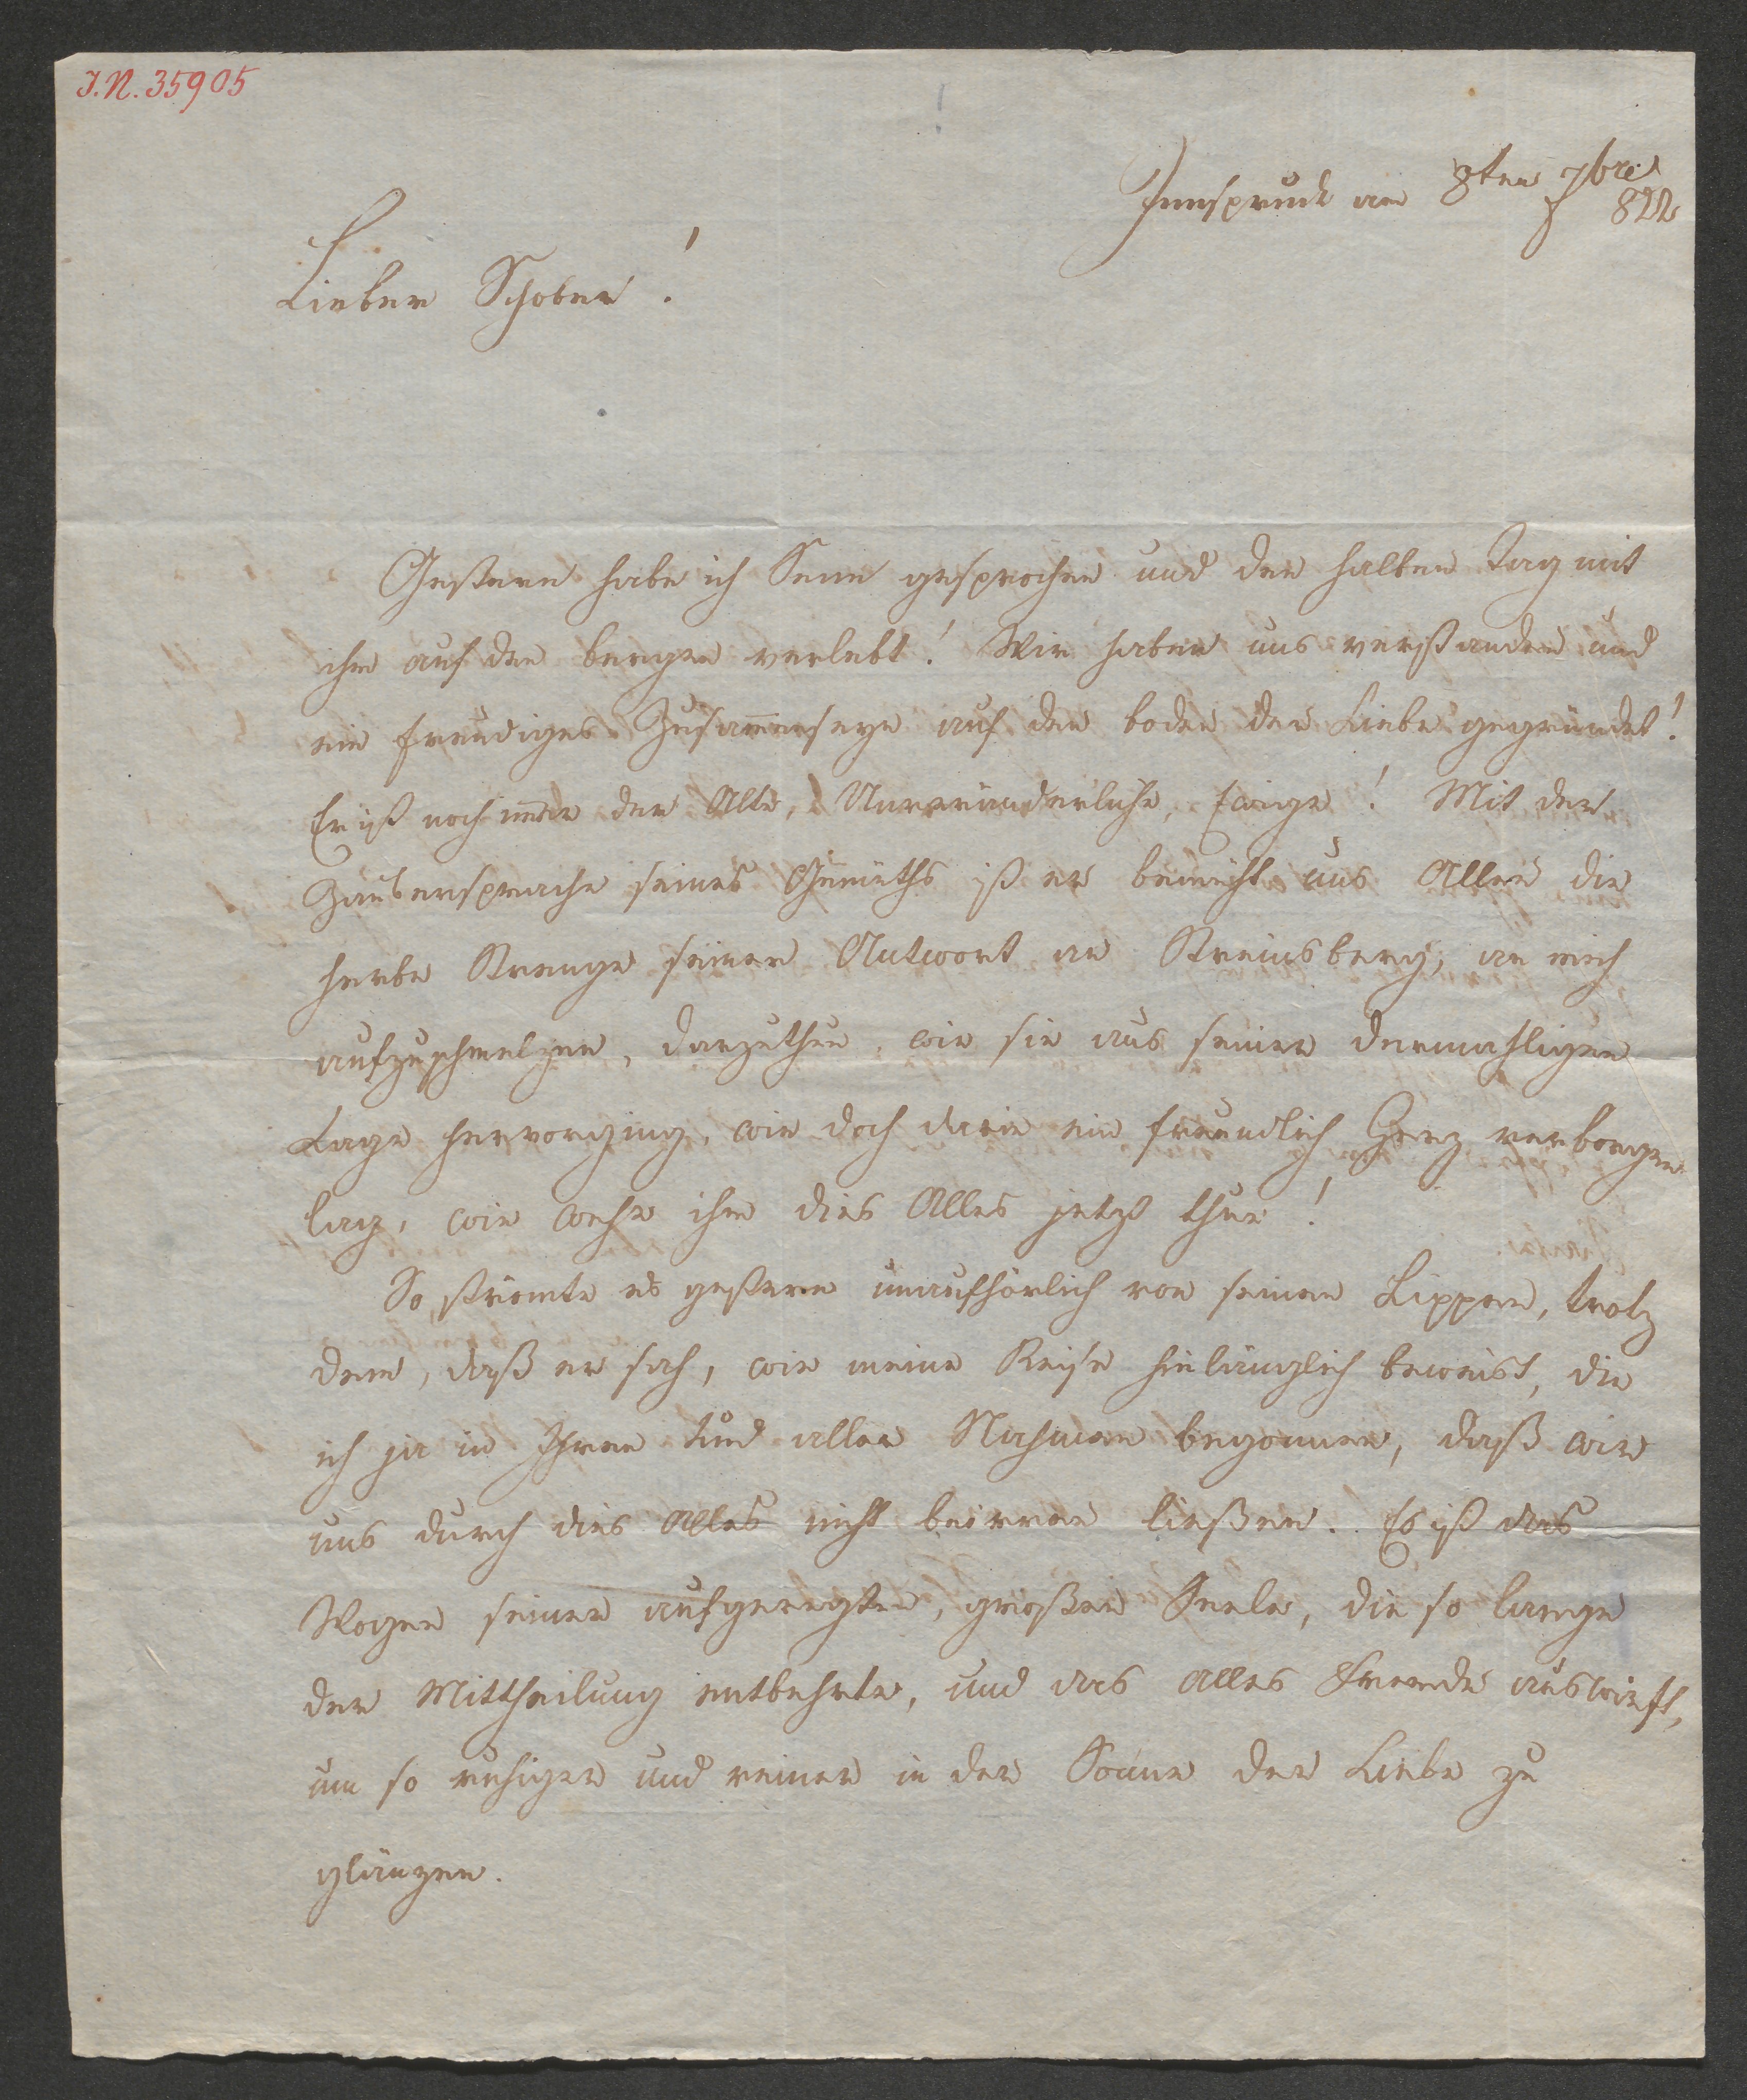 I.N. 35905
Innspruck am 8ten 7bre
822
Lieber Schober!
Gestern habe ich Senn gesprochen und den halben Tag mit
ihm auf den bergen verlebt! Wir haben uns verstanden und
ein freudiges Zusam̅enseyn auf den boden der Liebe gegründet!
Er ist noch im̅er der Alte, Unveränderliche, Ewige! Mit der
Zaubersprache seines Gemüths ist er bemüht uns Allen die
herbe Strenge seiner Antwort an Streinsberg, an mich
aufzuschmelzen, darzuthun, wie sie aus seiner dermahligen
Lage hervorging, wie doch darin ein freundlich Herz verborgen
lag, wie wehe ihm dies Alles jetzt thue!
So strömte es gestern unaufhörlich von seinen Lippen, trotz
dem, daß er sah, wie meine Reise hinlänglich beweist, die
ich ja in Ihren und aller Nahmen begonnen, daß wir
uns durch dies Alles nicht beirren ließen. Es ist das
Wogen seiner aufgeregten, großen Seele, die so lange
der Mittheilung entbehrte, und das alles Fremde auswirft,
um so ruhiger und reiner in der Son̅e der Liebe zu
glänzen.